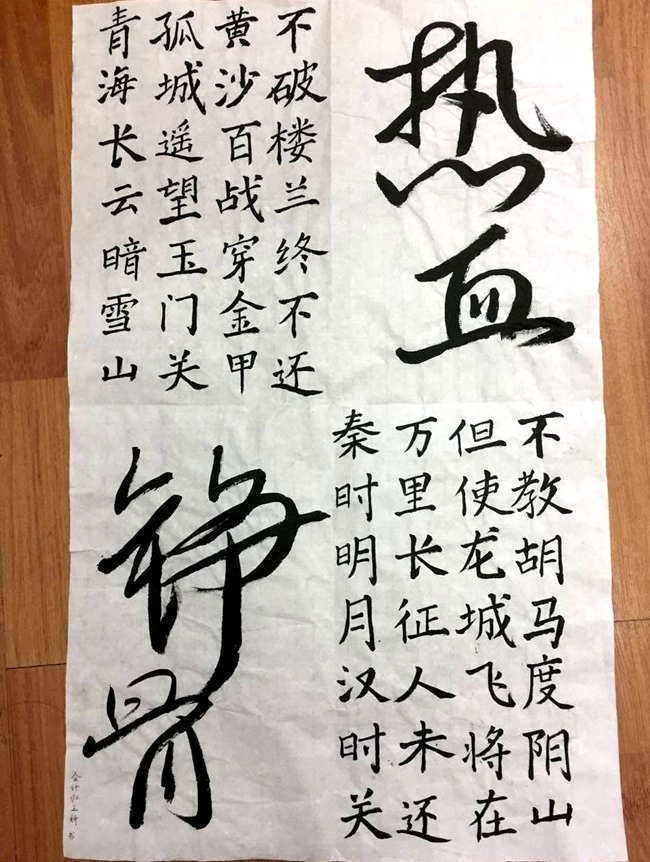 青海长云暗雪山
孤城遥望玉门关
黄沙百战穿金甲
不破楼兰终不还
热血
铮骨
秦时明月汉时关
万里长征人未还
但使龙城飞将在
不教胡马度阴山
会计 书